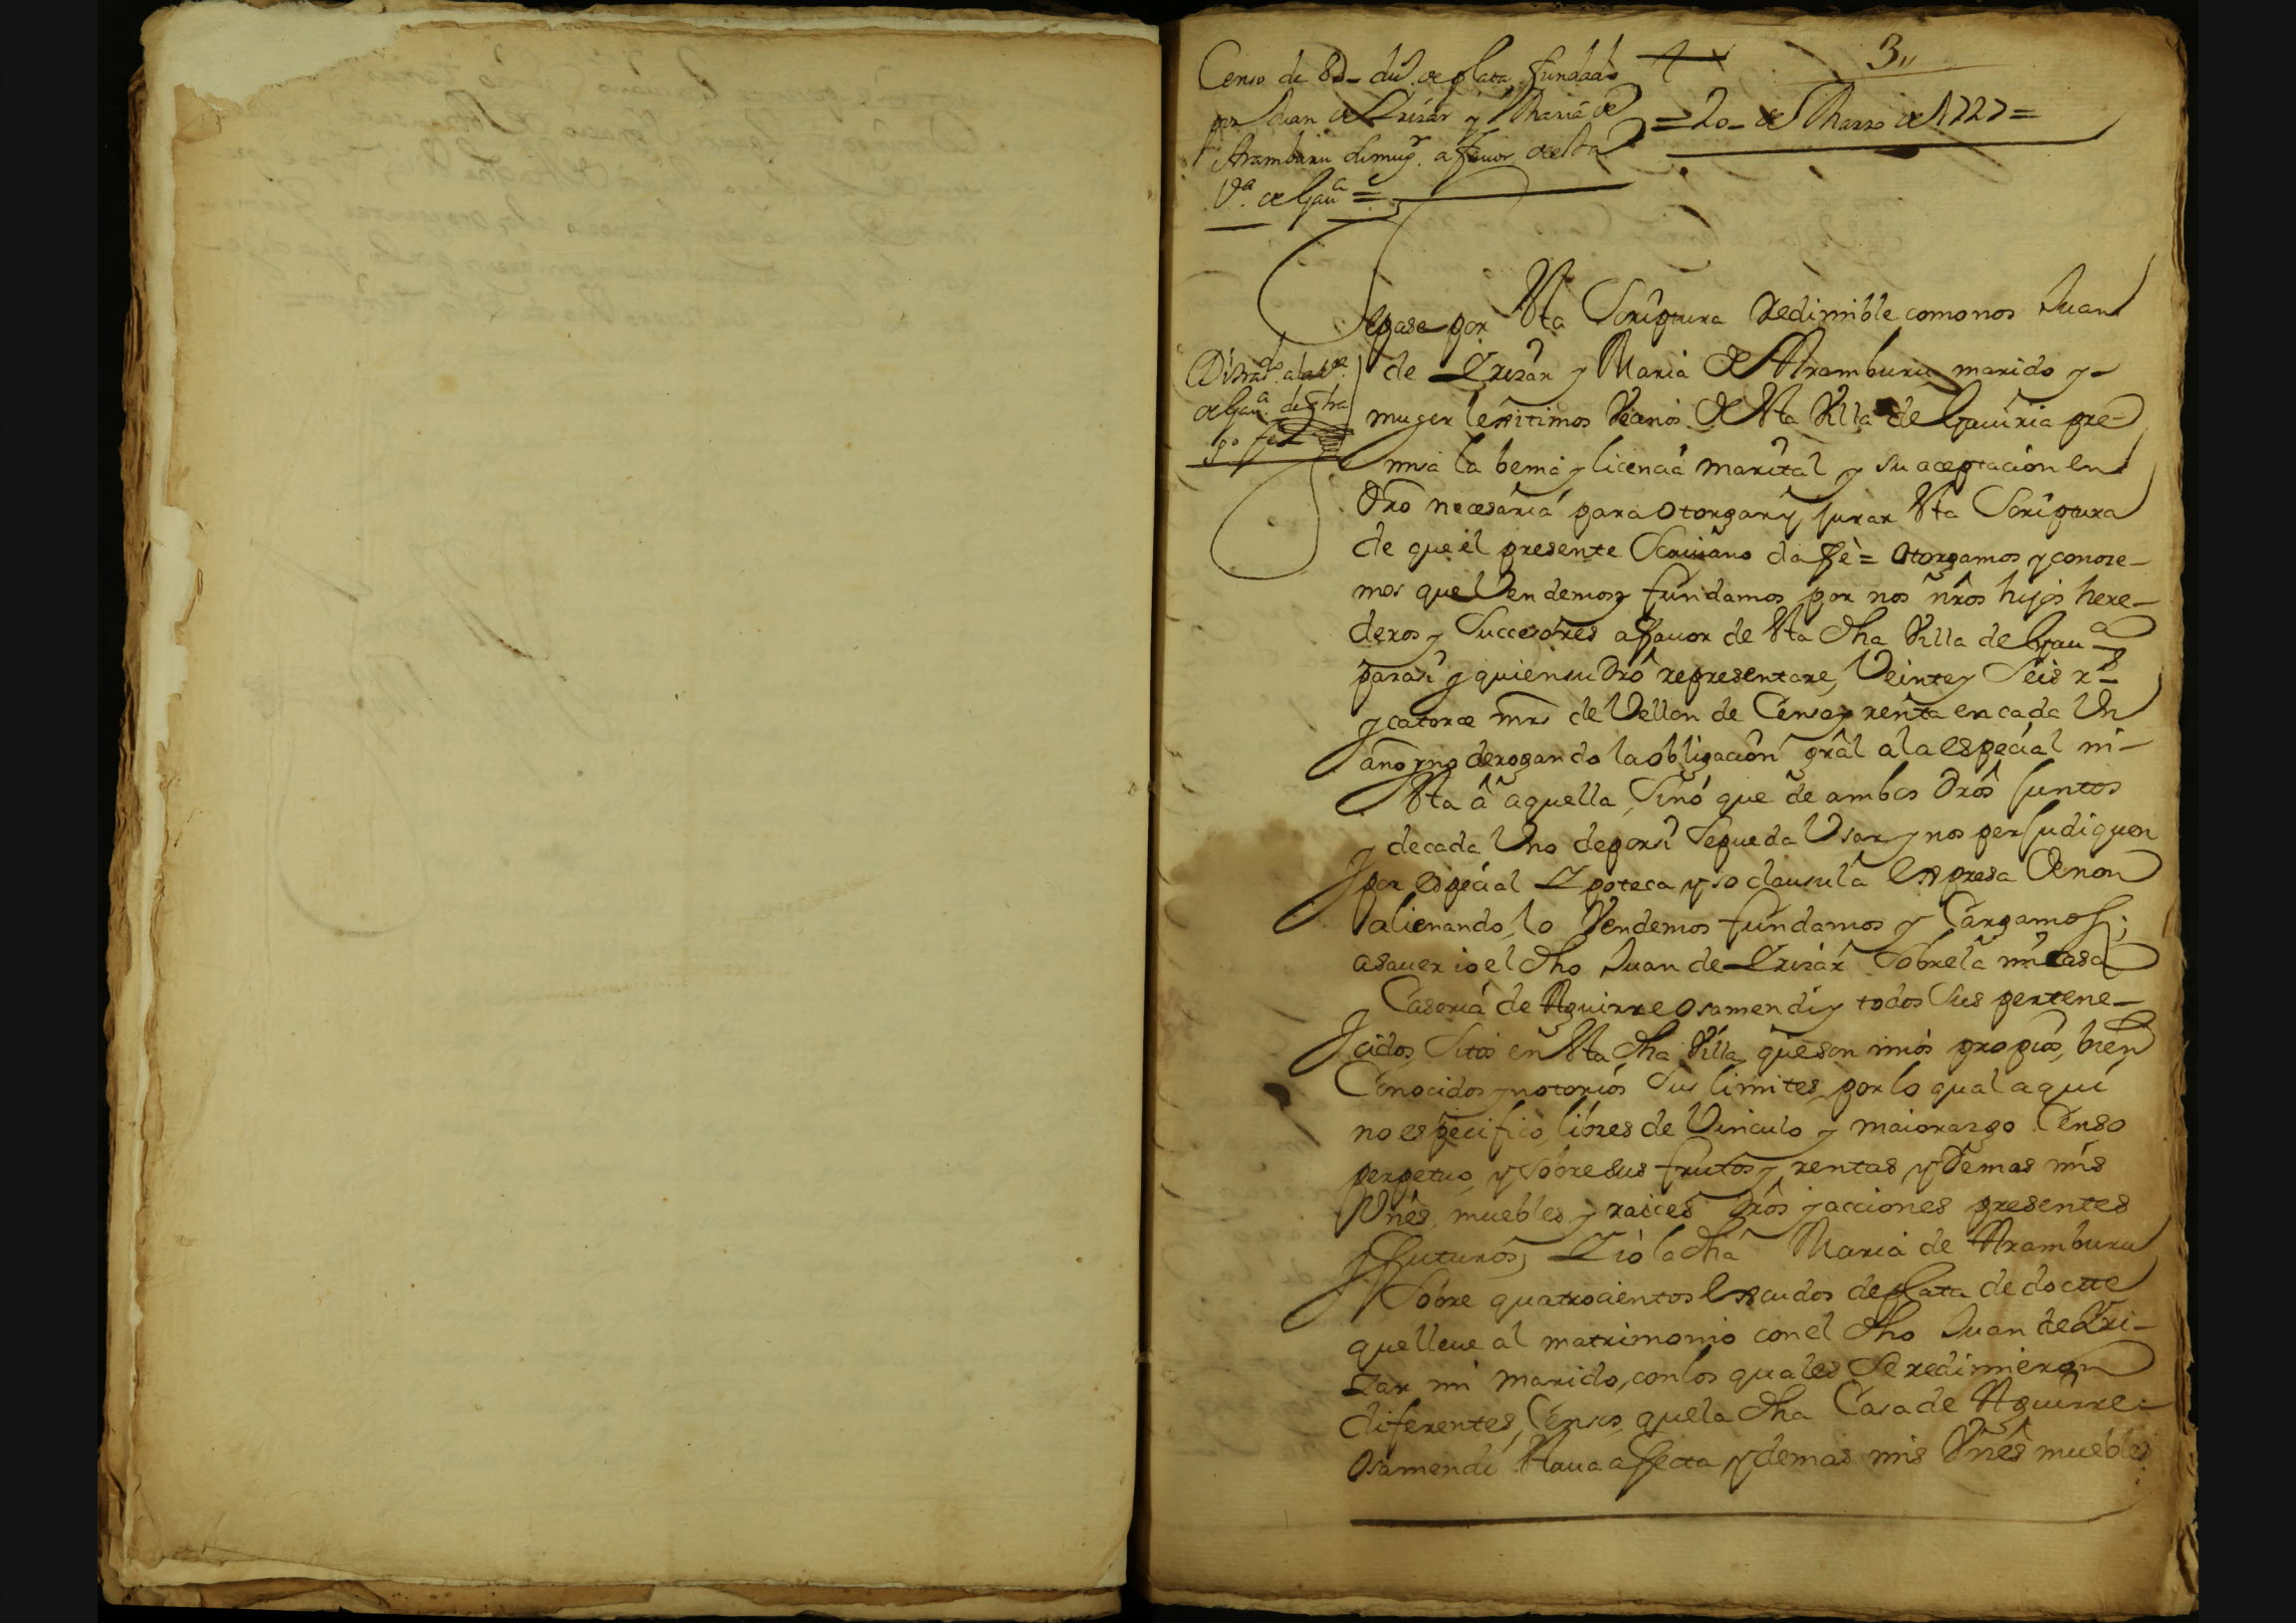 3,,
Censo de 80 duⁱ. de plata fundado
por Juan de Yrizar y Maria de
Aramburu su mugr. a fauor de esta
Vª. de Gauª =
= 20 - de Marzo de 1727 =
Sepase por Esta Scriptura redimible como nos Juan
de Yrizar y Maria de Aramburu marido y
muger lexitimos Vecinos de Esta Villa de Gauiria pre
misa la benia y licencia marital y su aceptacion en
dro necesaria para otorgar y jurar Esta Scriptura
de que el presente Scriuano da fee = otorgamos y conoze-
mos que Vendemos y fundamos por nos nros hijos here-
deros y Succesores a fauor de Esta dha Villa de Gauª
para si y quien su dro representare, Veinte y Seis rs
y catorce mrs de Vellon de Censo y renta en cada Un
año y no derogando la obligacion gral a la especial ni
Esta â aquella, Sinó que de ambos dros Juntos
y de cada Uno de por si Se pueda Usar y nos perjudiquen
por especial Ypoteca y so clausula Expresa de non
alienando, lo Vendemos fundamos y Cargamos;
a sauer io el dho Juan de Yrizar Sobre la mi casa
Caseria de Aguirre osamendi y todos Sus pertene-
cidos, Sitos en Esta dha Villa que son mios propios, bien
Conocidos y notorios Sus limites por lo qual aqui
no especifico, libres de Vinculo y maiorazgo Censo
perpetuo, y Sobre sus frutos y rentas y demas mis
Vnes, muebles y raices dros y acciones presentes
y futuros, Y io la dha Maria de Aramburu
Sobre quatrocientos Escudos de plata de docte
que lleue al matrimonio con el dho Juan de Yri-
zar mi marido, con los quales Se redimieron
diferentes Censos que la dha Casa de Aguirre-
osamendi Staua afecta y demas mis Vnes muebles